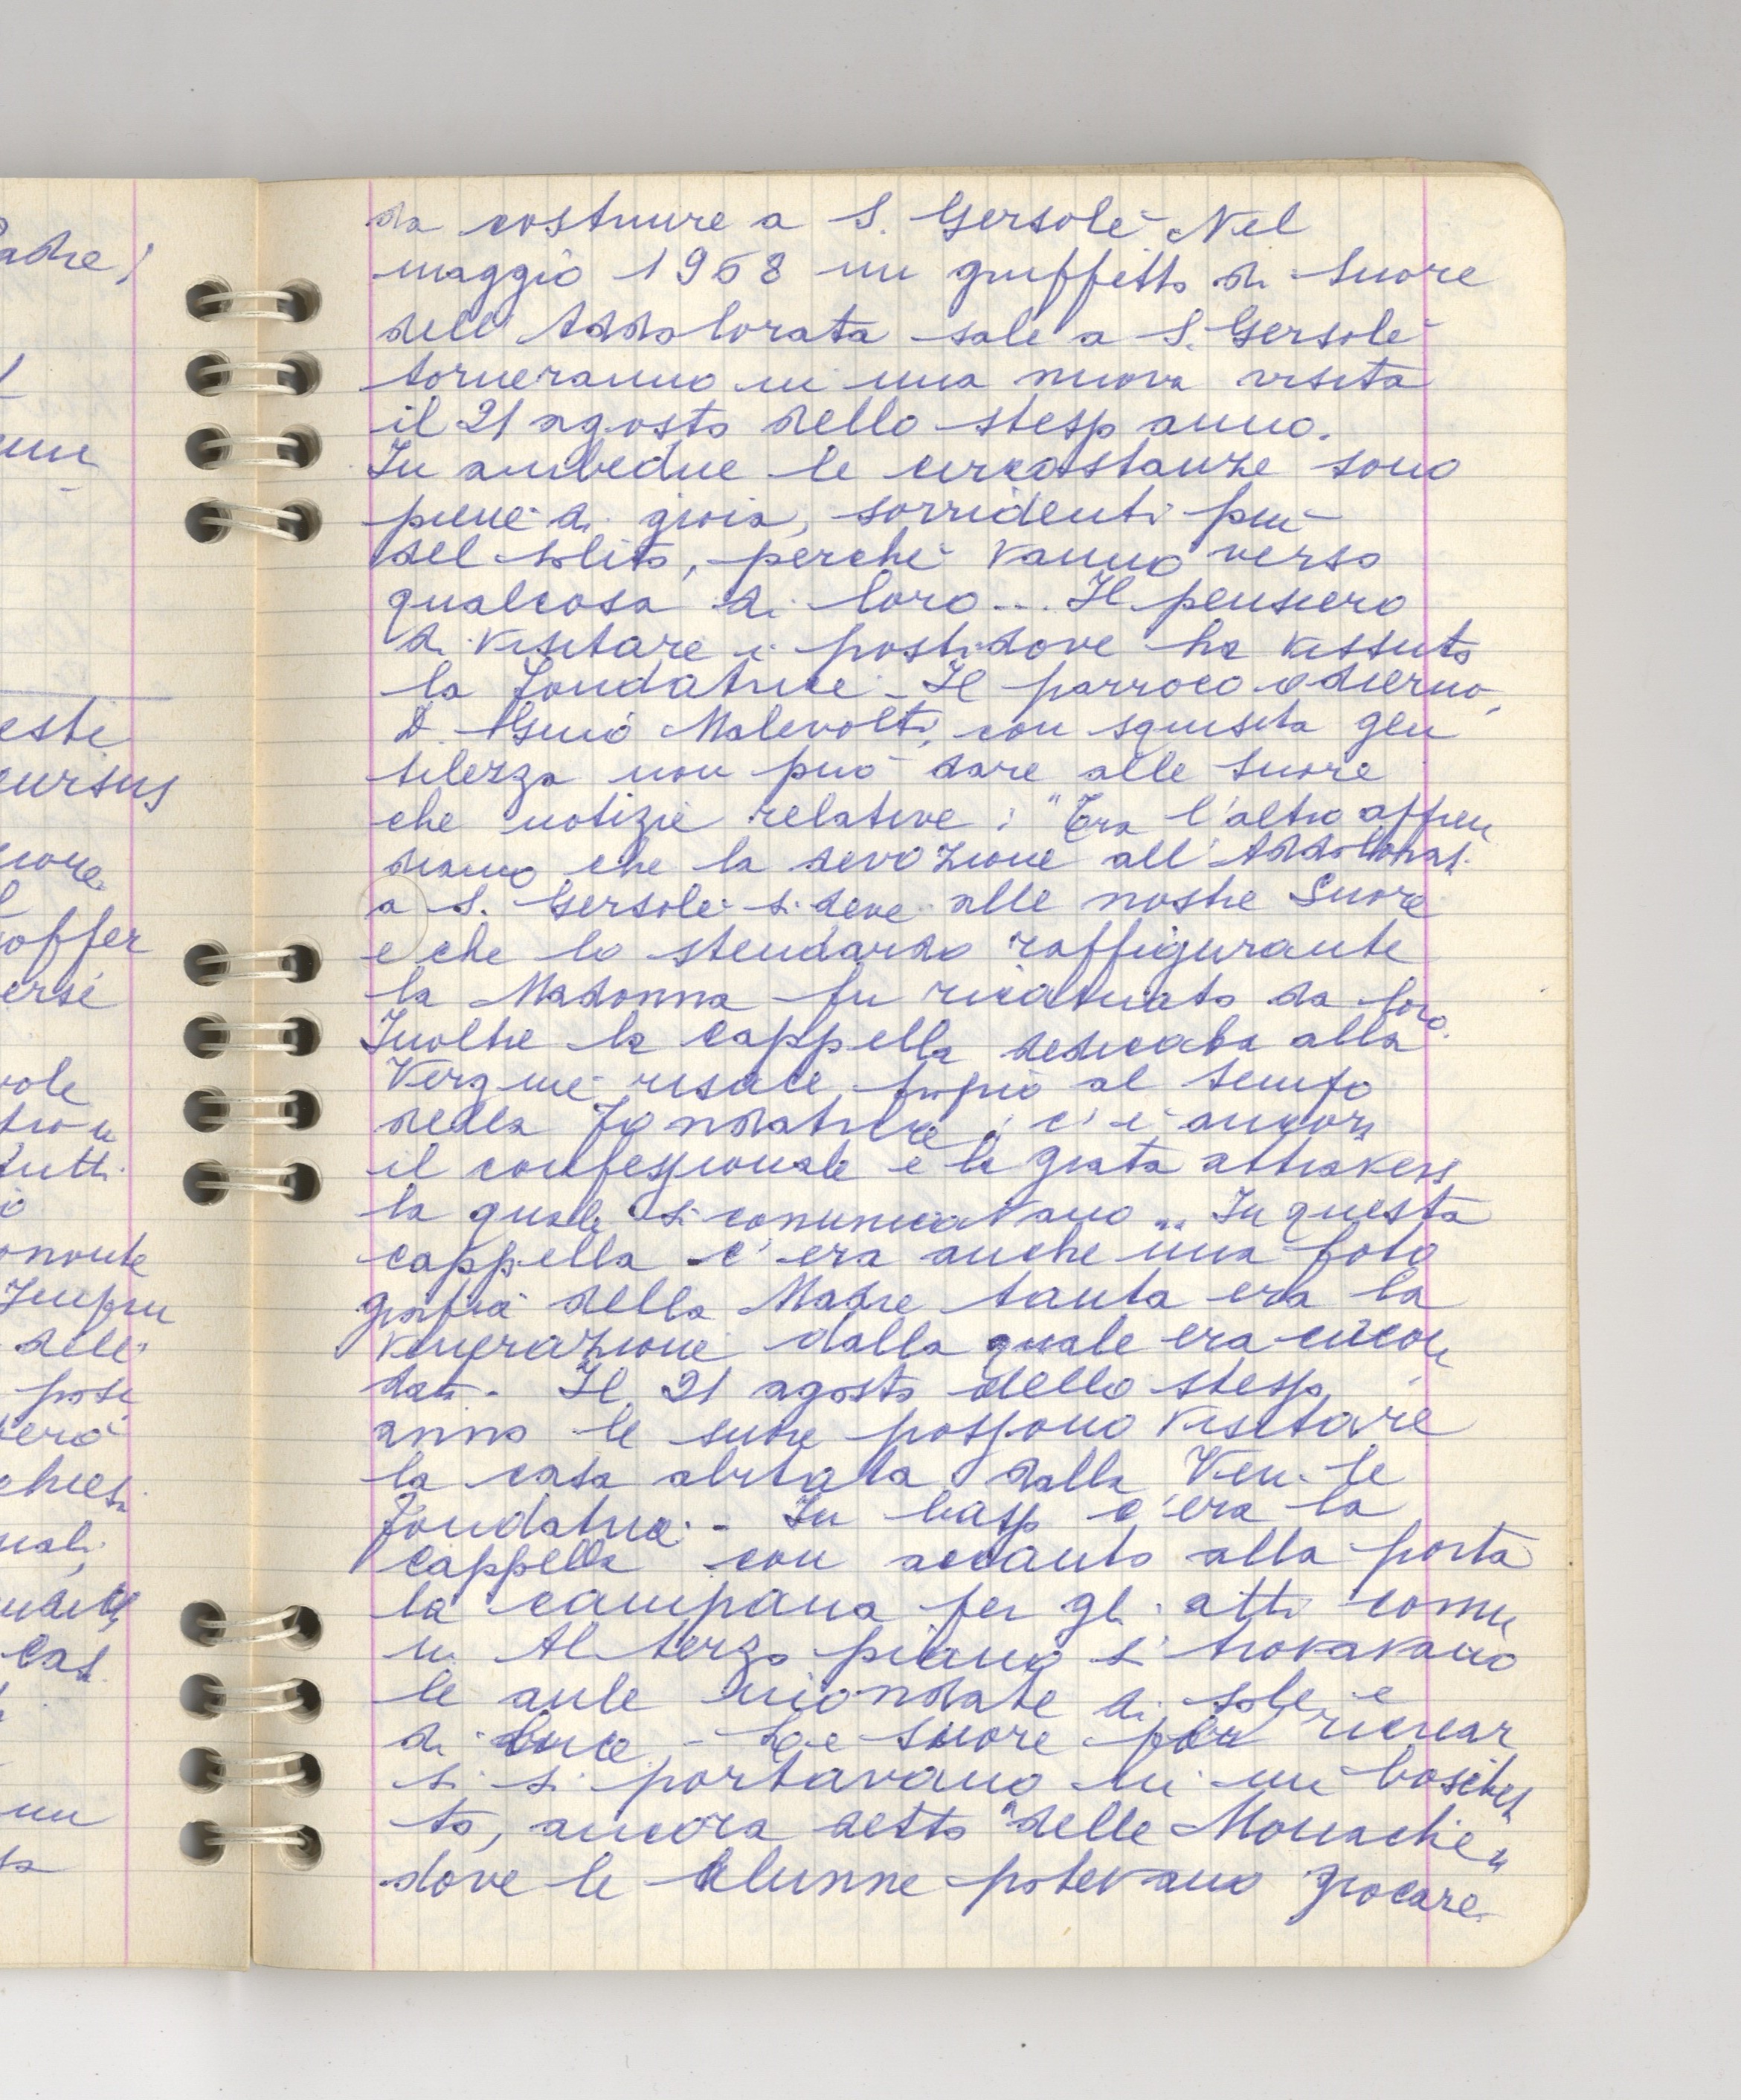 da costruire a S. Gersolè - Nel
maggio 1968 un gruppetto di suore
dell'Addolorata sale a S. Gersolè
torneranno in una nuova visita
il 21 agosto dello stesso anno.
In ambedue le circostanze sono
piene di gioia, sorridenti più
del solito, perchè vanno verso
qualcosa di loro... Il pensiero
di visitare i posti dove ha vissuto
la fondatrice - Il parroco odierno,
D. Malevolti, con squisita gen
tilezza non può dare alle suore
che notizie relative: "Tra l'altro appren
diamo che la devozione all'Addolorat.
a S. Gersolè si deve alle nostre Suore
e che lo stendardo raffigurante
la Madonna fu ricamato da loro.
Inoltre la cappella dedicata alla
Vergine risale proprio al tempo
della Fondatrice; c'è ancora
il confessionale e la grata attraverso
la quale si comunicavano.. In questa
cappella c'era anche una foto
grafia della Madre tanta era la
venerazione dalla quale era circon
data - Il 21 agosto dello stesso
anno le suore possono visitare
la casa abitata dalla Ven. te
fondatrice. - In basso c'era la
cappella con accanto alla porta
la campana per gli atti comu
ni. Al terzo piano si trovavano
le aule inondate di sole e
di luce - Le suore per ricrear
si si portavano in un boschet
to, ancora detto "delle Monache"
dove le alunne potevano giocare
adre;
este
cursus
offer
ersi
role
tutti
pose
però
uali,
un